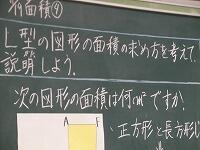 面積④
L型の図形の面積の求め方を考えて、
説明しよう。
次の図形の面積は何㎠ですか。
A F
正方形と長方形